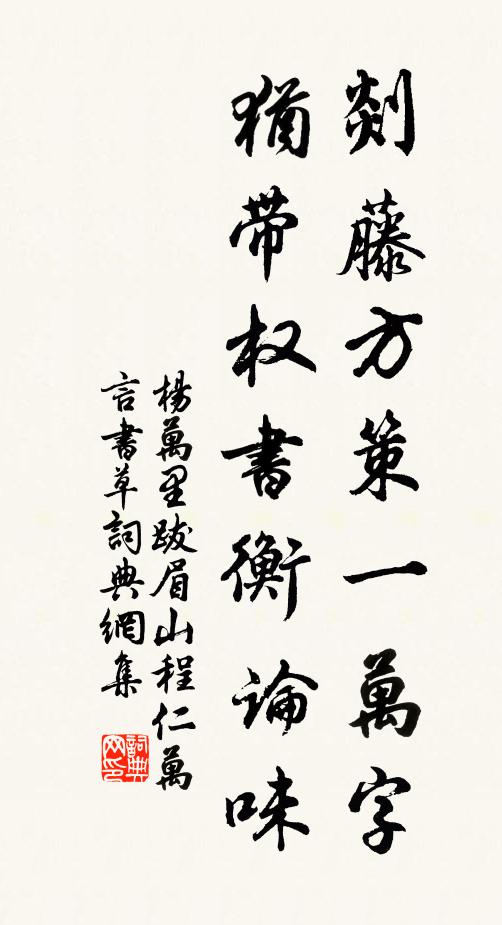 剡藤方策一萬字
猶带权書衡論味
楊萬里跋眉山程仁萬
言書草詞典網集
詞典网印